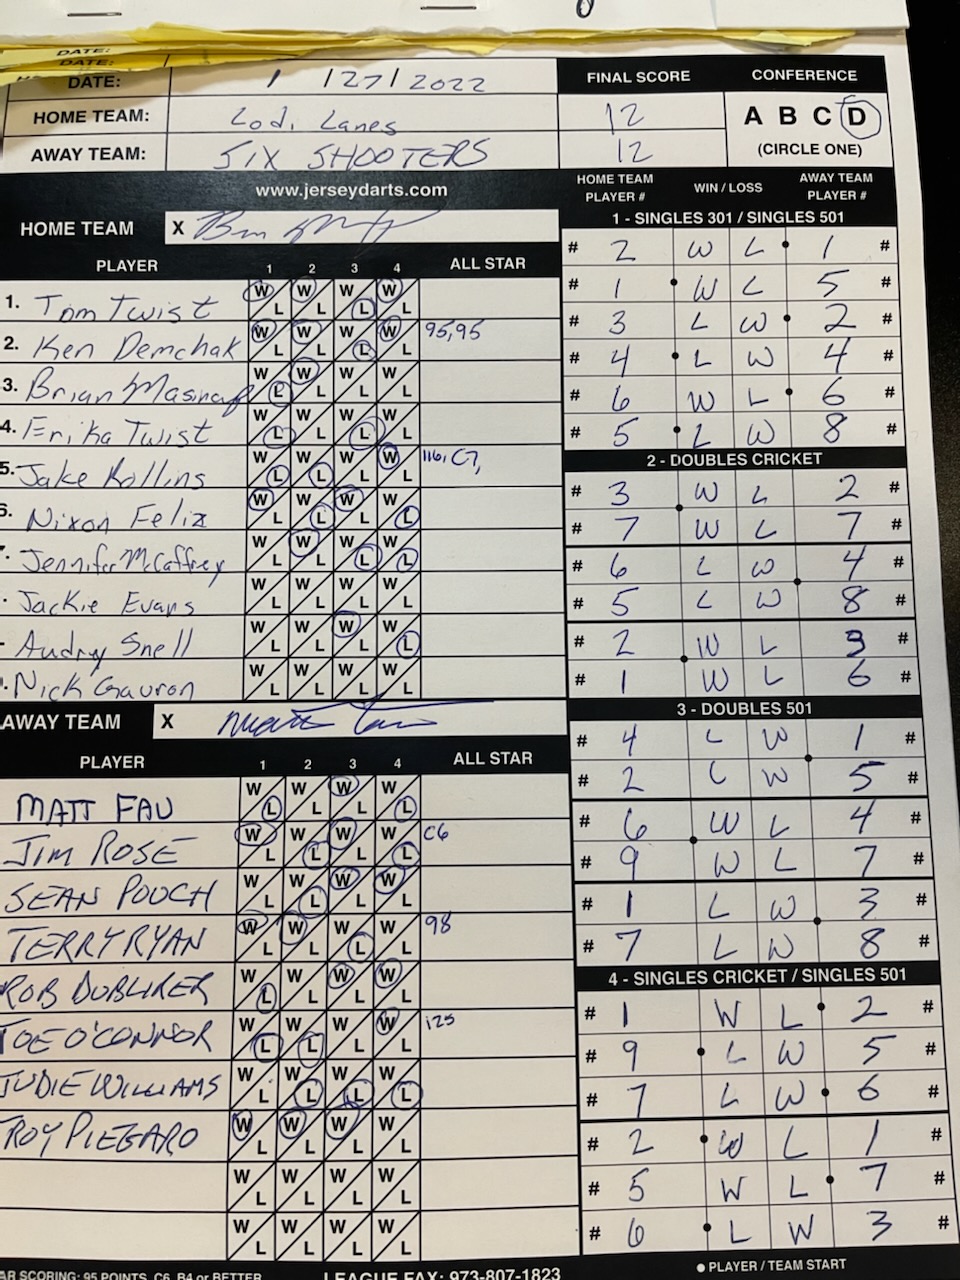 DATE:
DATE:
DATE: 1 /27/2022 FINAL SCORE CONFERENCE
HOME TEAM: Lodi Lanes 12 A B C D
AWAY TEAM: SIX SHOOTERS 12 (CIRCLE ONE)
www.jerseydarts.com HOME TEAM PLAYER # WIN / LOSS AWAY TEAM PLAYER #
HOME TEAM X
PLAYER 1 2 3 4 ALL STAR
1. Tom Twist W L W L W L W L
2. Ken Demchak W L W L W L W L 95,95
3. Brian W L W L W L W L
4. Erika Twist W L W L W L W L
5. Jake Rollins W L W L W L W L 116, C7,
6. Nixon Felix W L W L W L W L
Jennifer McCaffrey W L W L W L W L
Jackie Evans W L W L W L W L
Audrey Snell W L W L W L W L
Nick Gauron W L W L W L W L
AWAY TEAM X
PLAYER 1 2 3 4 ALL STAR
MATT FAU W L W L W L W L
JIM ROSE W L W L W L W L C6
SEAN POUCH W L W L W L W L
TERRY RYAN W L W L W L W L 98
ROB W L W L W L W L
JOE O'CONNOR W L W L W L W L 125
JUDIE WILLIAMS W L W L W L W L
W L W L W L W L
W L W L W L W L
W L W L W L W L
1 - SINGLES 301 / SINGLES 501
# 2 W L 1 #
# 1 W L 5 #
# 3 L W 2 #
# 4 L W 4 #
# 6 W L 6 #
# 5 L W 8 #
2 - DOUBLES CRICKET
# 3 W L 2 #
# 7 W L 7 #
# 6 L W 4 #
# 5 L W 8 #
# 2 W L 3 #
# 1 W L 6 #
3 - DOUBLES 501
# 4 L W 1 #
# 2 L W 5 #
# 6 W L 4 #
# 9 W L 7 #
# 1 L W 3 #
# 7 L W 8 #
4 - SINGLES CRICKET / SINGLES 501
# 1 W L 2 #
# 9 L W 5 #
# 7 L W 6 #
# 2 W L 1 #
# 5 W L 7 #
# 6 L W 3 #
AR SCORING: 95 POINTS, C6, B4 or BETTER LEAGUE FAX: 973-807-1823 ● PLAYER / TEAM START